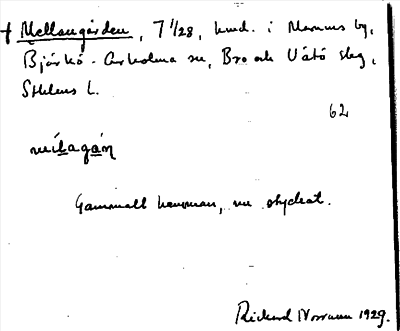 † Mellangården, 7 1/28, hmd. i Marums by,
Björkö-Arholma sn, Bro och Vätö slg,
Sthlms l.
62
Gammalt hemman, nu styckat.
Rickard Norrman 1929.